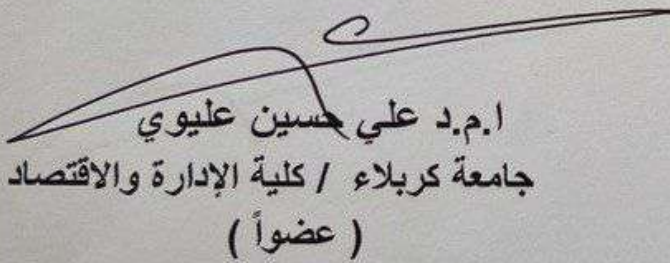 ا.م.د علي حسين عليوي
جامعة كربلاء / كلية الإدارة والاقتصاد
( عضواً )